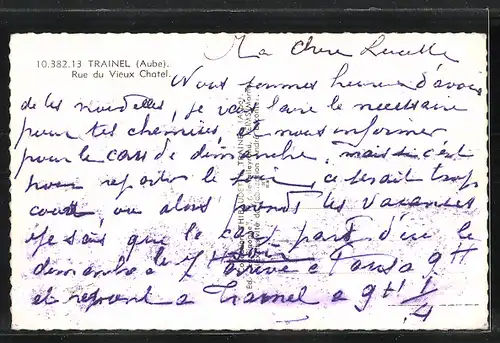 10.382.13 TRAINEL (Aube).
Rue du Vieux Chatel.
Ma chere Lucette
Nous sommes heureux d'avoir
de tes nouvelles, je vais faire le necessaire
pour tes chemises, nous informer
pour le cars de dimanche, mais si c'est
pour repartir le soir, ce serait trop
court, ou alors prends tes vacances
je sais que le car part d'ici le
dimanche a 7H soir arrive a Paris a 9H
et repart a Trainel a 9H 1/4